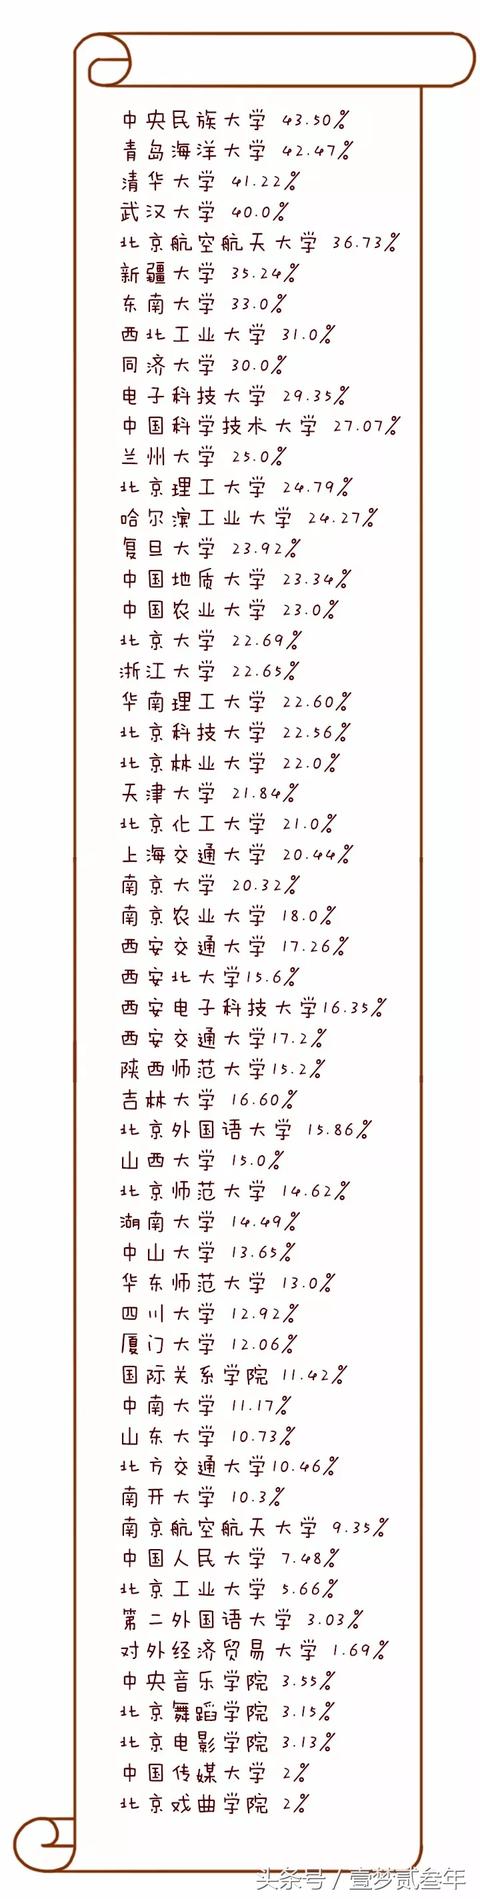 中央民族大学 43.50%
青岛海洋大学 42.47%
清华大学 41.22%
武汉大学 40.0%
北京航空航天大学 36.73%
新疆大学 35.24%
东南大学 33.0%
西北工业大学 31.0%
同济大学 30.0%
电子科技大学 29.35%
中国科学技术大学 27.07%
兰州大学 25.0%
北京理工大学 24.79%
哈尔滨工业大学 24.27%
复旦大学 23.92%
中国地质大学 23.34%
中国农业大学 23.0%
北京大学 22.69%
浙江大学 22.65%
华南理工大学 22.60%
北京科技大学 22.56%
北京林业大学 22.0%
天津大学 21.84%
北京化工大学 21.0%
上海交通大学 20.44%
南京大学 20.32%
南京农业大学 18.0%
西安交通大学 17.26%
西安北大学15.6%
西安电子科技大学16.35%
西安交通大学17.2%
陕西师范大学15.2%
吉林大学 16.60%
北京外国语大学 15.86%
山西大学 15.0%
北京师范大学 14.62%
湖南大学 14.49%
中山大学 13.65%
华东师范大学 13.0%
四川大学 12.92%
厦门大学 12.06%
国际关系学院 11.42%
中南大学 11.17%
山东大学 10.73%
北方交通大学10.46%
南开大学 10.3%
南京航空航天大学 9.35%
中国人民大学 7.48%
北京工业大学 5.66%
第二外国语大学 3.03%
对外经济贸易大学 1.69%
中央音乐学院 3.55%
北京舞蹈学院 3.15%
北京电影学院 3.13%
中国传媒大学 2%
北京戏曲学院 2%
头条号 / 壹梦贰叁年